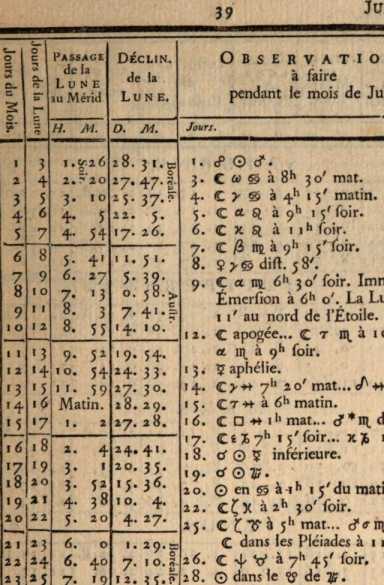 39 Ju
Jours du Mois. Jours de la Lune PASSAGE de la LUNE au Mérid DÉCLIN. de la LUNE. OBSERVATIO
à faire
pendant le mois de Ju
H. M. D. M. Jours.
Soir. Boréale.
1 3 1. 26 28. 31.
2 4 2. 20 27. 47.
3 5 3. 10 25. 37.
4 6 4. 5 22. 5.
5 7 4. 54 17. 26.
6 8 5. 41 11. 51.
7 9 6. 27 5. 39.
8 10 7. 13 0. 58.
Austr.
9 11 8. 3 7. 41.
10 12 8. 55 14. 10.
11 13 9. 52 19. 54.
12 14 10. 54 24. 33.
13 15 11. 59 27. 30.
14 16 Matin. 28. 29.
15 17 1. 2 27. 28.
16 18 2. 4 24. 41.
17 19 3. 1 20. 35.
18 20 3. 52 15. 36.
19 21 4. 38 10. 4.
20 22 5. 20 4. 27.
21 23 6. 0 1. 29.
Boréale
22 24 6. 40 7. 10.
23 25 7. 19 12. 35.
1. ☍ ☉ ♂.
3. ☾ ω ♋ à 8h 30′ mat.
4. ☾ γ ♋ à 4h 15′ matin.
5. ☾ α ♌ à 9h 15′ soir.
6. ☾ κ ♌ à 11h soir.
7. ☾ β ♍ à 9h 15′ soir.
8. ♀ γ ♋ dist. 58′.
9. ☾ α ♍ 6h 30′ soir. Imm
Émersion à 6h 0′. La Lu
11′ au nord de l'Étoile.
12. ☾ apogée... ☾ τ ♏ à 10
α ♏ à 9h soir.
13. ☿ aphélie.
14. ☾ γ ↔ 7h 20′ mat...
15. ☾ τ ↔ à 6h matin.
16. ☾ □ ↔ 1h mat... ♂ * ♏ d
17. ☾ ε ♑ 7h 15′ soir... κ ♑
18. ☌ ☉ ☿ inférieure.
19. ☌ ☉ ♅.
20. ☉ en ♋ à 1h 15′ du mati
22. ☾ ζ X à 2h 30′ soir.
25. ☾ ζ ♉ à 5h mat...
☾ dans les Pléiades à 11
26. ☾ ♆ ♉ à 7h 45′ soir.
28. ☉ dans le ♉ de ♅